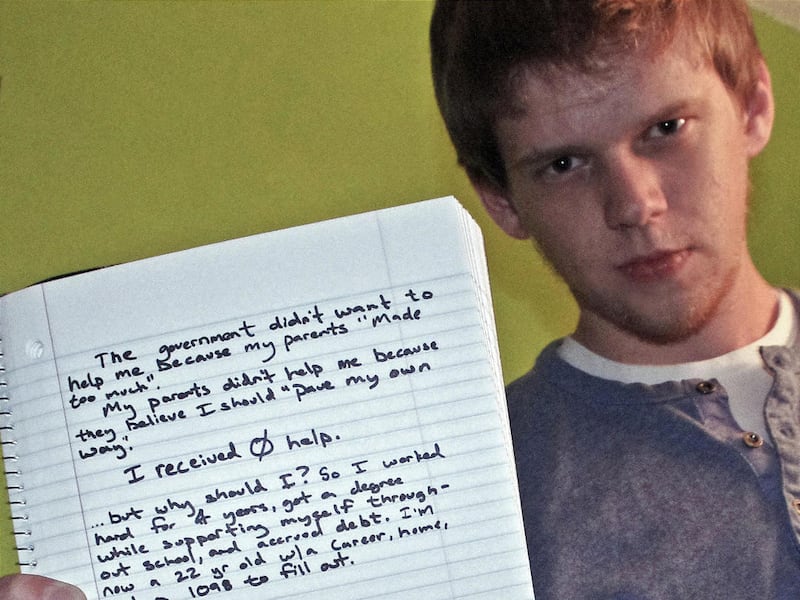 The government didn't want to
help me, Because my parents "Made
too much".
My parents didn't help me because
they believe I should "pave my own
way."
I received Ø help.
...but why should I? So I worked
hard for 4 years, got a degree
while supporting myself through-
out school, and accrued debt. I'm
now a 22 yr old w/a career, home,
1098 to fill out.